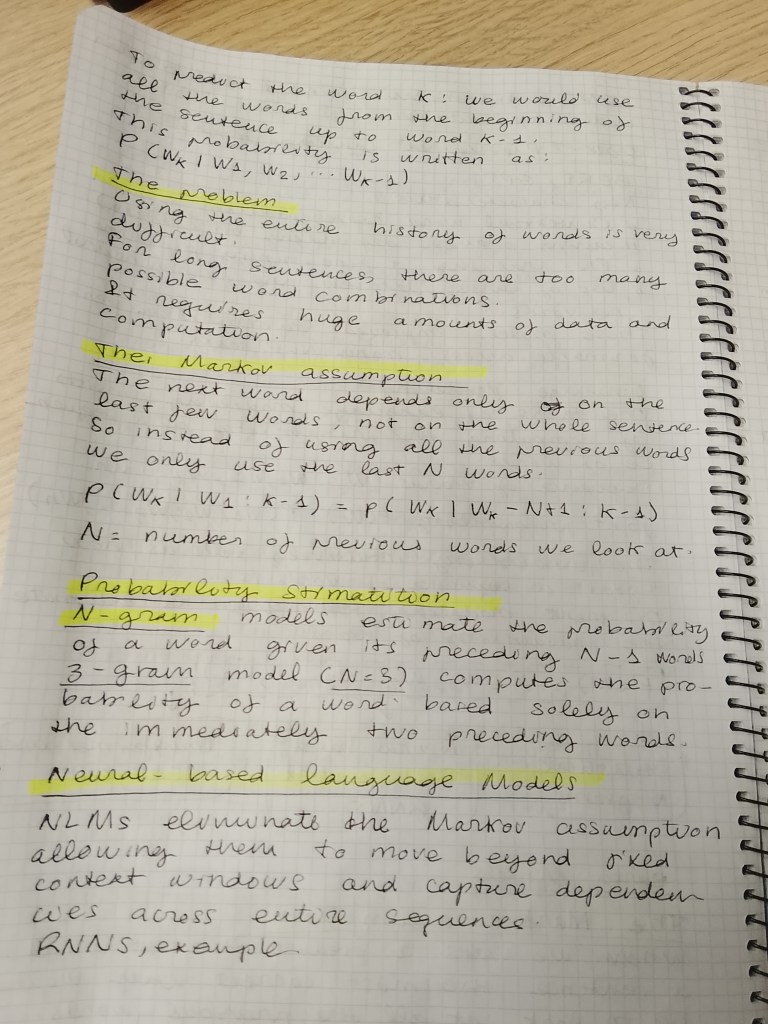 To predict the word K: we would use
all the words from the beginning of
the sentence up to word K-1.
This probability is written as:
P (WK | W1, W2, ... WK-1)
The problem
Using the entire history of words is very
difficult.
For long sentences, there are too many
possible word combinations.
It requires huge amounts of data and
computation.
The: Markov assumption
The next word depends only on the
last few words, not on the whole sentence.
So instead of using all the previous words
we only use the last N words.
P (WK | W1 : K-1) = P( WK | WK - N+1 : K-1)
N = number of previous words we look at.
Probability Stimatition
N-gram models estimate the probability
of a word given its preceding N-1 words
3-gram model (N=3) computes the pro-
bability of a word based solely on
the immediately two preceding words.
Neural-based language Models
NLMs eliminate the Markov assumption
allowing them to move beyond fixed
context windows and capture dependen
cies across entire sequences.
RNNs, example